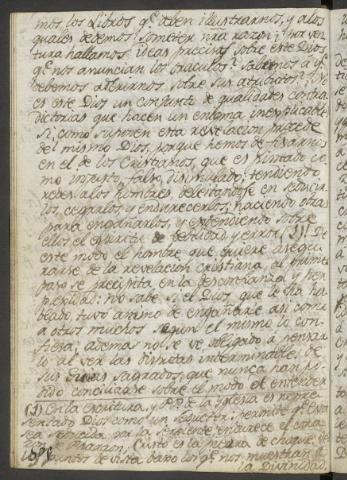 mos, los Libros q.e deben illustrarnos, y alos
quales debemos someter nra razon; ¿por ven
tura hallamos ideas precisas sobre este Dios
q.e nos anuncian los oraculos? Sabemos a q.e
debemos atenernos sobre sus atributos? No
es este Dios un conjunto de qualidades contra
dictorias que hacen un enigma inexplicable?
Si, como suponen esta revelacion procede
del mismo Dios, porque hemos de fiarnos
en el de los Cristianos, que es pintado co
mo injusto, falso, disimulado; tendiendo
redes alos hombres deleitandose en seducir
los, cegarlos, y endurecerlos; haciendo
para engañarlos, y extendiendo sobre
ellos el espiritu de y error (1)! De
este modo el hombre que quiere asegu
rarse de la revelacion cristiana, al primer
paso se precipita en la desconfianza y per
plexidad: No sabe si el Dios, que le ha ha
blado tuvo animo de engañarle asi como
a otros muchos segun el mismo lo con
fiesa, ademas no se ve obligado a pensar
lo al ver las disputas interminables de
sus Guias sagrados, que nunca han po
dido conciliarse sobre el modo de entender
(1) En la escritura, y P.P. de la Yglesia es repre
sentado Dios como un Seductor; permite q.e Eva
sea seducida por la serpiente endurece el cora
zon de Faraon, Cristo es la piedra de choque, he
puntos de vista baxo los q.e nos muestran á
la Divinidad.